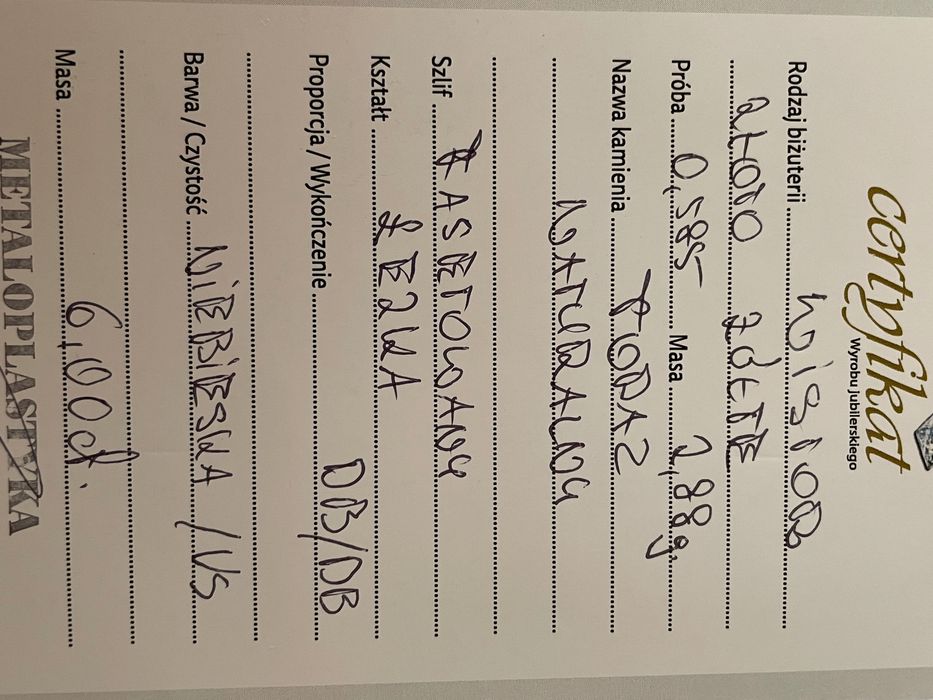 certyfikat
Wyrobu jubilerskiego
Rodzaj biżuterii WISIOR
ZŁOTO ŻÓŁTE
Próba 0,585 Masa 2,88g.
Nazwa kamienia TOPAZ
NATURALNY
Szlif FASETOWANY
Kształt ŁEZKA
Proporcja / Wykończenie DB/DB
Barwa / Czystość NIEBIESKA / VS
Masa 6,00ct.
METALOPLASTYKA